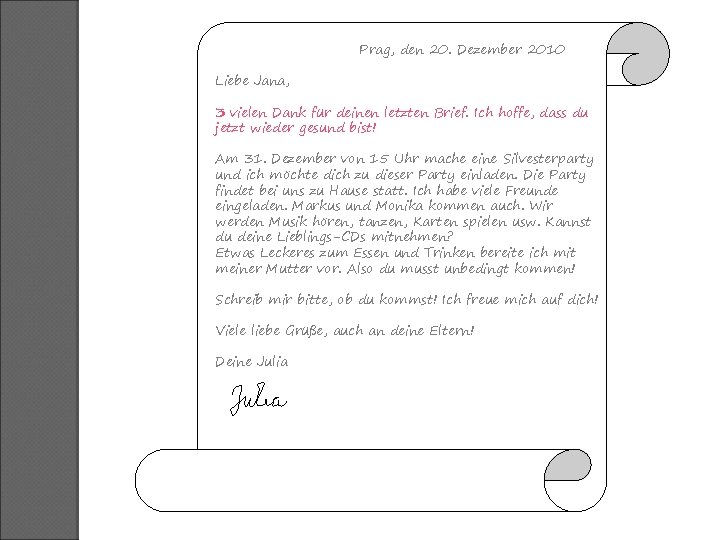 Prag, den 20. Dezember 2010
Liebe Jana,
3 vielen Dank fur deinen letzten Brief. Ich hoffe, dass du
jetzt wieder gesund bist!
Am 31. Dezember von 15 Uhr mache eine Silvesterparty
und ich mochte dich zu dieser Party einladen. Die Party
findet bei uns zu Hause statt. Ich habe viele Freunde
eingeladen. Markus und Monika kommen auch. Wir
werden Musik horen, tanzen, Karten spielen usw. Kannst
du deine Lieblings-CDs mitnehmen?
Etwas Leckeres zum Essen und Trinken bereite ich mit
meiner Mutter vor. Also du musst unbedingt kommen!
Schreib mir bitte, ob du kommst! Ich freue mich auf dich!
Viele liebe Gruße, auch an deine Eltern!
Deine Julia
Julia